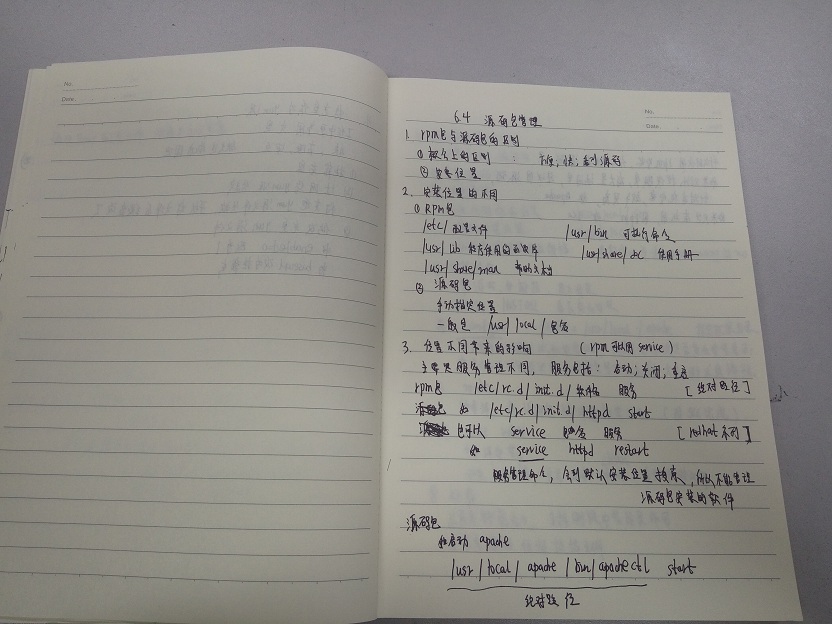 No.
Date.
No.
Date.
6.4 源码包管理
1. rpm包与源码包的区别
① 概念上的区别 : 方便;快;看到源码
② 安装位置
2. 安装位置的不同
① RPM包
/etc/ 配置文件 /usr/bin 可执行命令
/usr/lib 程序使用的函数库 /usr/share/doc 使用手册
/usr/share/man 帮助文档
② 源码包
手动指定位置
一般是 /usr/local/包名
3. 位置不同带来的影响 (rpm可以用service)
主要是服务管理不同, 服务包括: 启动;关闭;重启
rpm包 /etc/rc.d/init.d/软件名 服务 [绝对路径]
如 /etc/rc.d/init.d/httpd start
也可以 service 包名 服务 [redhat系列]
如 service httpd restart
服务管理命令,会到默认安装位置搜索,所以不能管理
源码包安装的软件
源码包
如启动 apache
/usr/local/apache/bin/apachectl start
绝对路径